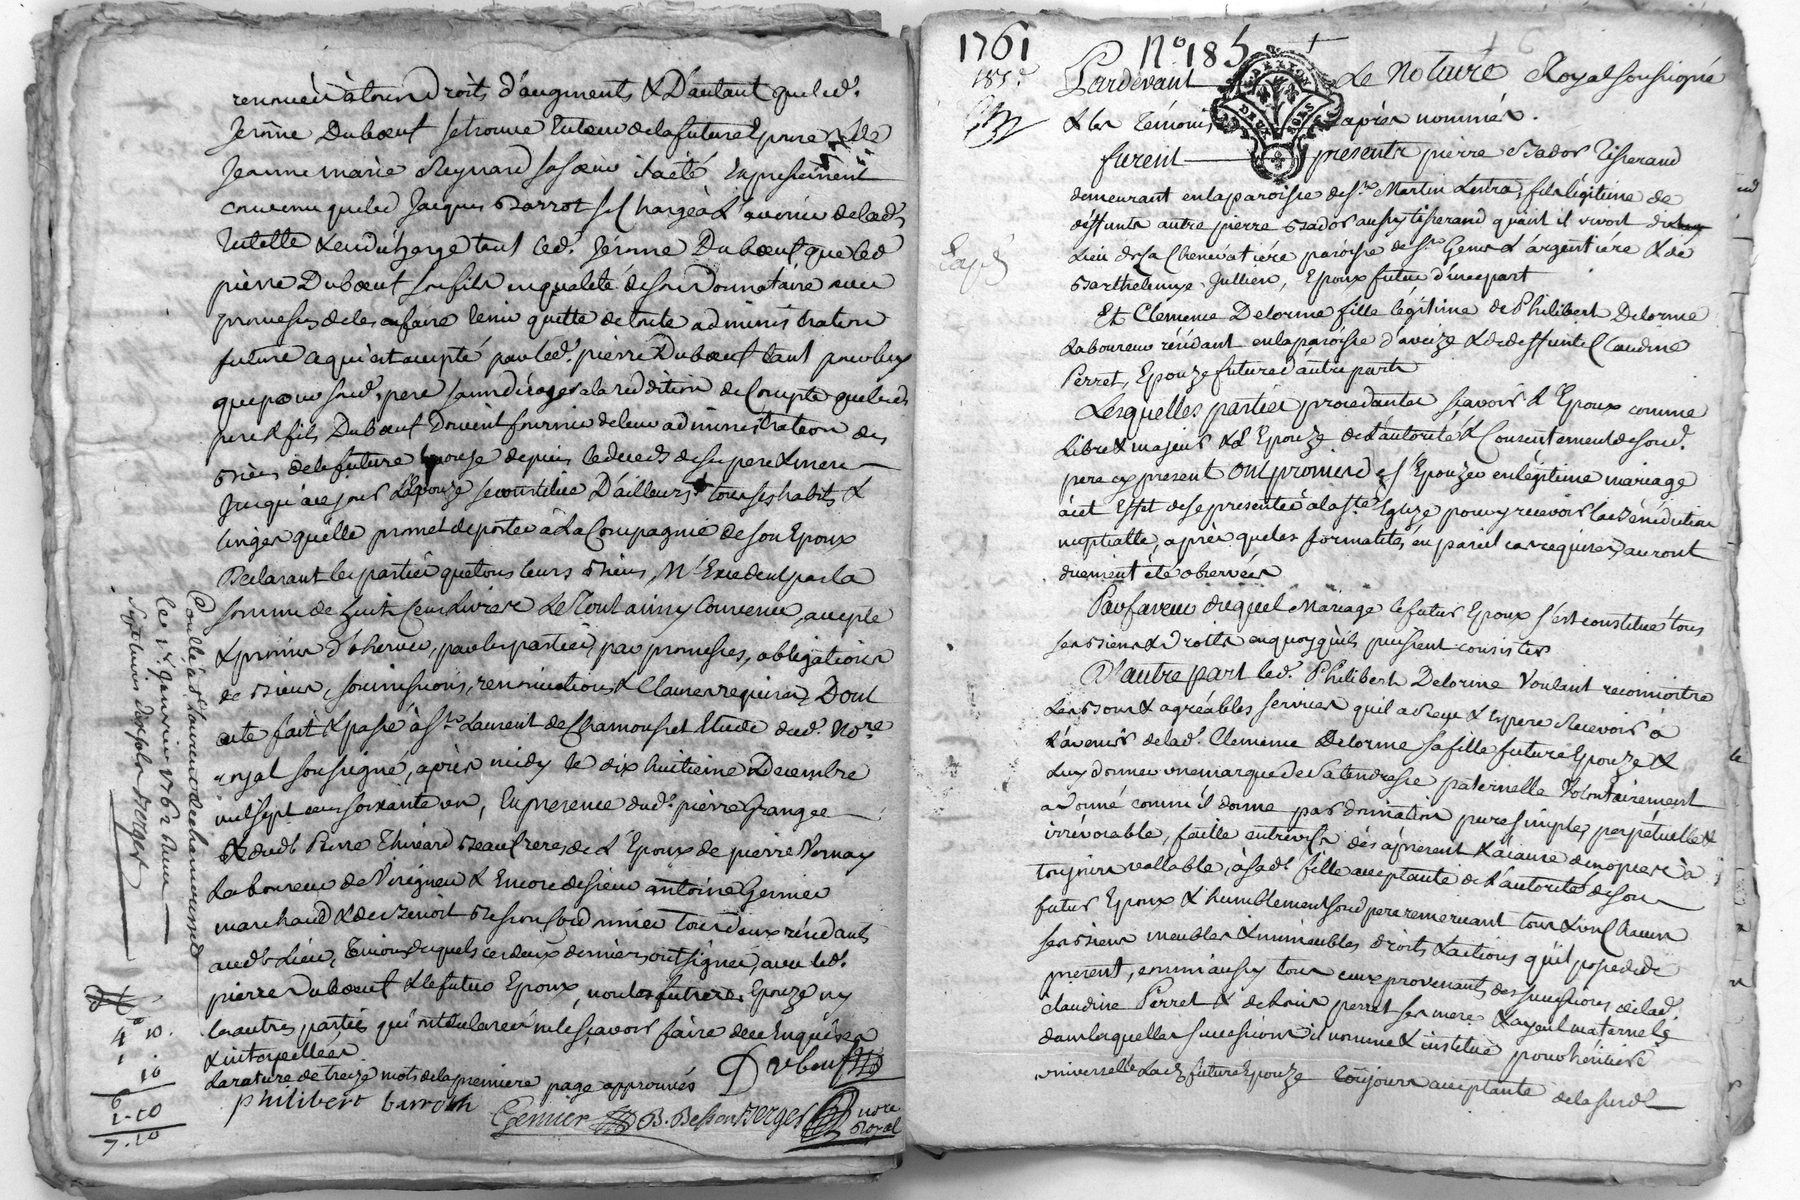 droits d'augments & D'autant que led.
Jerôme Dubœuf se trouve tuteur de la future Epouse & de
Jeanne marie Reynard sa sœur il a été Expressement
convenu que led Jacques Barrot se Chargera à L'avenir de lad.
tutelle & en décharge tant led. Jerome Dubœuf que led
pierre Dubœuf son fils en qualité de son Donnataire avec
promesses de les en faire tenir quitte de toute administration
future ce qui est accepté par led. pierre Dubœuf tant pour luy
que pour sond. pere sans déroger à la reddition de Compte que lesd
pere & fils Dubœuf Doivent fournir de leur administration des
Biens de la future Epouse depuis le deceds de ses pere & mere
Jusqu'à ce jour L'Epouze se constitue D'ailleurs tous ses habits &
linges qu'elle promet de porter à La Compagnie de son Epoux
Declarant les parties que tous leurs Biens N'Excedent pas la
somme de huit Cens Livres Le Tout ainsy Convenu, accepté
& promis d'observer, par les parties, par promesses, obligations
de Biens, soumissions, renonciations & Clauses requises, Dont
acte fait & passé à St. Laurent de Chamousset Etude dud. No.re
royal soussigné, après midy le dix huitieme Decembre
mil sept cens soixante un, En presence dud. pierre Grangee
& dud. Pierre Thivéard Beaufrere de L'Epoux de pierre Vornay
Laboureur de Virigneu & Encore de sieur antoine Gennier
marchand & de Benoit Besson Cordonnier tous deux résidants
aud. Lieu, Témoins desquels ces deux derniers ont signé, avec led.
pierre Dubœuf & le futur Epoux, non la future Epouze ny
les autres parties qui ont déclaré ne le sçavoir faire de ce Enquises
& interpellées
La rature de treize mots de la premiere page approuvés
Dubœuf
philibert barroth
Gennier B. Besson Berger nore
Royal
Conllé à St. Laurent de chamousset
le 1er janvier 1762 Reçu
Sept livres dix sols Berger
4 10.
1 .
10
6
1.10
7.10
1761 No 185
185e
Pardevant Le Notaire Royal soussigné
& les Témoins après nommés.
GENERATION
DEUX SOLS
furent présents pierre Bador Tisserand
demeurant en la paroisse de St. Martin Lestra, fils légitime de
déffunts autre pierre Bador aussy tisserand quand il vivoit du
Lieu de la Chenevatière paroisse de St. Genis L'argentiére & de
Barthelemye Jullien, Epoux futur d'une part
Et Clemence Delorme fille légitime de Philibert Delorme
Laboureur résidant en la paroisse d'aveize & de deffunte Claudine
Perret, Epouze future d'autre part
Lesquelles parties procedantes sçavoir L'Epoux comme
Libre & majeur & L'Epouze de L'autorité & Consentement de sond.
pere cy present ont promis de s'Epouzer en légitime mariage
à cet Effet de se presenter à la Ste. Eglize pour y recevoir la Bénédiction
nuptialle, après que les formalités en pareil cas requises, auront
duement été observées
En faveur duquel Mariage le futur Epoux s'est constitué tous
ses Biens & Droits en quoy qu'ils puissent consister
D'autre part led. Philibert Delorme Voulant reconnoitre
Les Bons & agréables services qu'il a Reçu & Espere Recevoir à
L'avenir de lad. Clemence Delorme sa fille future Epouze &
Luy donner une marque de sa tendresse paternelle Volontairement
a Donné comme il donne par donnation pure simple, perpétuelle &
irrévocable, faitte entrevifs dès à present & à jamais
toujours vallable, à sad. fille acceptante de L'autorité de son
futur Epoux & humblement sond pere remerciant tous & uns Chacuns
ses Biens meubles & immeubles droits & actions qu'il possede de
present, comm'aussy tous ceux provenants des successions de lad.
Claudine Perret & de Louis perret ses mere & ayeul maternels
dans lesquelles successions il nomme & institue pour héritiere
universelle Lad. future Epouze toujours acceptante de la susd